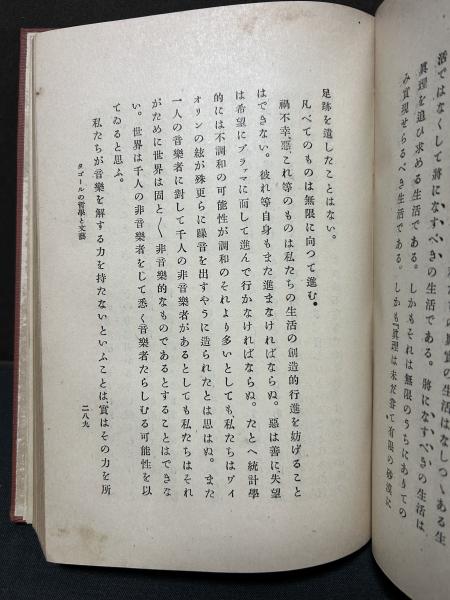 活ではなくして將になすべきの生活である。將になすべきの生活は、
眞理を追ひ求める生活である。しかもそれは無限のうちにありての
み實現せらるべき生活である。しかも『眞理は未だ嘗て有限の砂漠に
足跡を遺したことはない。
凡べてのものは無限に向つて進む。
禍不幸、惡、これ等のものは私たちの生活の創造的行進を妨げること
はできない。彼れ等自身もまた進まなければならぬ。惡は善に、失望
は希望にブラァマに面して進んで行かなければならぬ。たとへ統計學
的には不調和の可能性が調和のそれより多いとしても、私たちはヴイ
オリンの絃が殊更らに躁音を出すやうに造られたとは思はぬ。また
一人の音樂者に對して千人の非音樂者があるとしても私たちはそれ
がために世界は固と〱非音樂的なものであるとすることはできな
い。世界は千人の非音樂者をして悉く音樂者たらしむる可能性を以
てゐると思ふ。
私たちが音樂を解する力を持たないといふことは、實はその力を所
タゴールの哲學と文藝
二八九